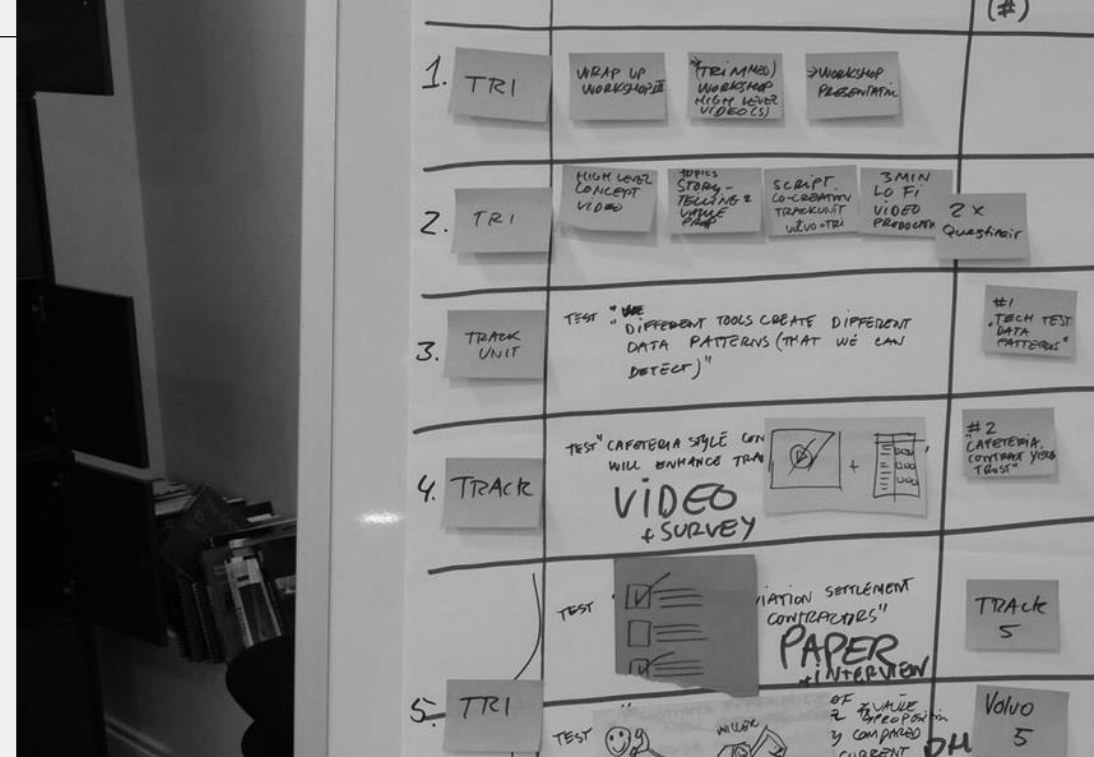 (#)
1.
TRI
WRAP UP
WORKSHOP III
(TRIMMED)
WORKSHOP
HIGH LEVEL
VIDEO(S)
→WORKSHOP
PRESENTATIN
2.
TRI
HIGH LEVEL
CONCEPT
VIDEO
TOPICS
STORY-
TELLING &
VALUE
PROP
SCRIPT.
CO-CREATION
TRACKUNIT
VOLVO+TRI
3 MIN
LO FI
VIDEO
2 x
Questinair
3.
TRACK
UNIT
TEST "WE
"DIFFERENT TOOLS CREATE DIFFERENT
DATA PATTERNS (THAT WE CAN
DETECT)"
#1
TECH TEST
"DATA
PATTERNS"
4.
TRACK
TEST "CAFETERIA STYLE CON
WILL ENHANCE TRA
VIDEO
+ SURVEY
+
#2
"CAFETERIA
CONTRACT
TRUST"
TEST
IATION SETTLEMENT
CONTRACTORS"
PAPER
+INTERVIEW
TRACK
5
5.
TRI
TEST
OF
VALUE
PROPOSITIN
COMPARED
CURRENT
Volvo
5